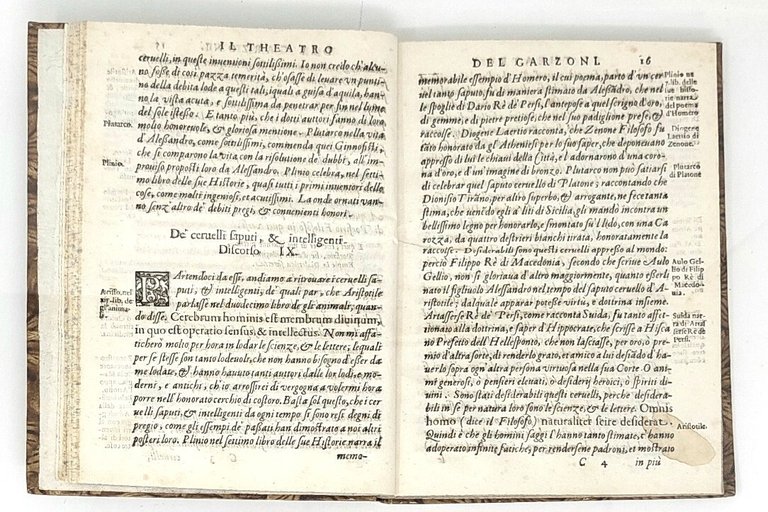 IL THEATRO
cervelli, in queste inventioni sottilissimi. Io non credo ch'alcu-
no fosse di così pazza temerità, ch'osasse di levare un punti-
no della debita lode a questi tali, iquali a guisa d'aquila, han-
no la vista acuta, e sottilissima da penetrar per fin nel lume
del sole istesso. E tanto più, che i dotti auttori fanno di loro
molto honorevole, & gloriosa mentione. Plutarco nella vita
d'Alessandro, come sottilissimi, commenda quei Ginnosofisti,
che si comparono la vita, con la risolutione de' dubbi, all'im-
proviso proposti loro da Alessandro. Plinio celebra, nel setti-
mo libro delle sue Historie, quasi tutti i primi inventori delle
cose, come molti ingeniosi, et acutissimi. La onde ornati van-
no senz'altro de' debiti pregi, & convenienti honori.
Plutarco.
Plinio.
De' cervelli saputi, & intelligenti.
Discorso IX.
PArtendoci da essi, andiamo a ritrovare i cervelli sa-
puti, & intelligenti, de' quali par, che Aristotile
parlasse nel duodecimo libro de gli animali, quan-
do disse. Cerebrum hominis est membrum divinum,
in quo est operatio sensus, & intellectus. Non mi affa-
ticherò molto per hora in lodar le scienze, & le lettere, lequali
per se stesse son tanto lodevole, che non hanno bisogno d'esser da
me lodate, & hanno havuto tanti auttori dalle lor lodi, e mo-
derni, e antichi, ch'io arrossirei di vergogna a volermi hora
porre nell'honorato cerchio di costoro. Basta sol questo, che i cer
velli saputi, & intelligenti da ogni tempo si sono resi degni di
pregio, come gli essempi de' passati han dimostrato a noi altri
posteri loro. Plinio nel settimo libro delle sue Historie narra il
memo-
Aristo. nel
12. lib. de
gl'anima-
DEL GARZONI. 16
memorabile essempio d'Homero, il cui poema, parto d'un cer
vel tanto saputo, fu di maniera stimato da Alessandro, che nel
le spoglie di Dario Rè de' Persi, l'antepose a quel scrigno d'oro,
di gemme, e di pietre pretiose, che nel suo padiglione prese, &
raccolse. Diogene Laertio racconta, che Zenone Filosofo fu
tato honorato da gl'Atheniesi per lo suo saper, che deponevano
appresso di lui le chiavi della Città, e l'adornarono d'una coro-
na d'oro, e d'un'imagine di bronzo. Plutarco non può satiarsi
di celebrar quel saputo cervello di Platone; raccontando che
Dionisio Tirãno, per altro superbo, & arrogante, ne fece tanta
stima, che venẽdo egli a' liti di Sicilia, gli mandò incontra un
bellissimo legno per honorarlo, e smontato sù'l lido, con una Ca
rozza, da quattro destrieri bianchi tirata, honoratamente la
raccolse. Desiderabili sono questi cervelli appresso al mondo:
perciò Filippo Rè di Macedonia, secondo che scrive Aulo
Gellio, non si gloriava d'altro maggiormente, quanto esserli
nato il figliuolo Alessandro nel tempo del saputo cervello d'A-
ristotile; dal quale apparar potesse virtù, e dottrina insieme.
Artaserse Rè de' Persi, come racconta Suida, fu tanto affet-
tionato alla dottrina, e saper d'Hippocrate, che scrisse a Hisca
no Prefetto dell'Hellesponto, che non lasciasse, per oro, ò pre-
mio d'altra sorte, di renderlo grato, et amico a lui desiãdo d'ha-
verlo sopra ogn'altra persona virtuosa nella sua Corte. O ani-
mi generosi, ò pensieri elevati, ò desiderij heroici, ò spiriti di-
vini. Sono stati desiderabili questi cervelli, perche desidera-
bili in se per natura loro sono le scienze, & le lettere. Omnis
homo (dice il Filosofo) naturaliter scire desiderat.
Quindi è che gli homini saggi l'hanno tanto stimate, e hanno
adoperato infinite fatiche, per rendersene padroni, et mostrato
C 4 in più
Plinio ne
l lib. delle
sue histo-
rie narra
del poema
d'Homero
Diogene
Laetio di
Zenone.
Plutarco
di Platone
Aulo Gel-
lio di Filip
po Re di
Macedo-
nia.
Suida nar-
ra di Arta-
serse Re de
Persi.
Aristotile.